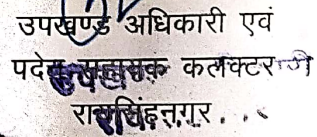 उपखण्ड अधिकारी एवं
पदेन सहायक कलक्टर
रायसिंहनगर